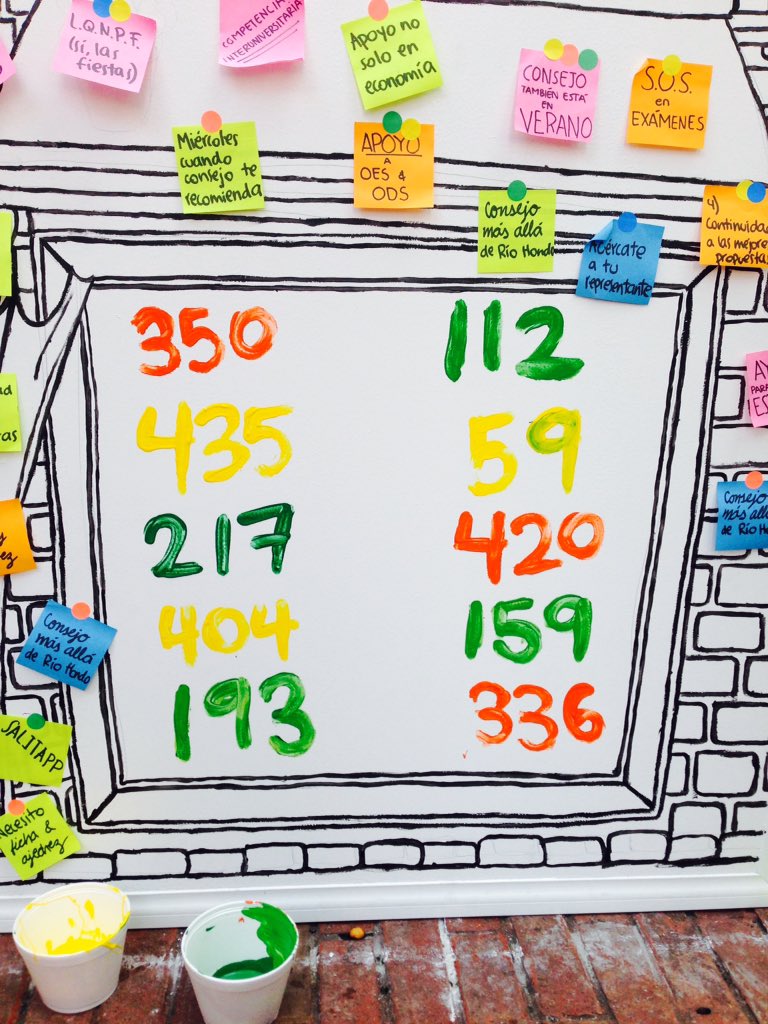 L.Q.N.P.F.
(sí, las
fiestas)
COMPETENCIA
INTERUNIVERSITARIA
Apoyo no
solo en
economía
CONSEJO
TAMBIÉN ESTÁ
EN
VERANO
S.O.S.
en
EXÁMENES
Miércoles
cuando
consejo te
recomienda
APOYO
A
OES &
ODS
Consejo
más allá
de Río Hondo
Acércate
a tu
representante
4)
Continuidad
a las mejores
propuestas
350
112
435
59
217
420
404
159
193
336
Consejo
más allá
de Río Ho
Consejo
más allá
de Río Hondo
SALITAPP
Necesito
ficha &
ajedrez